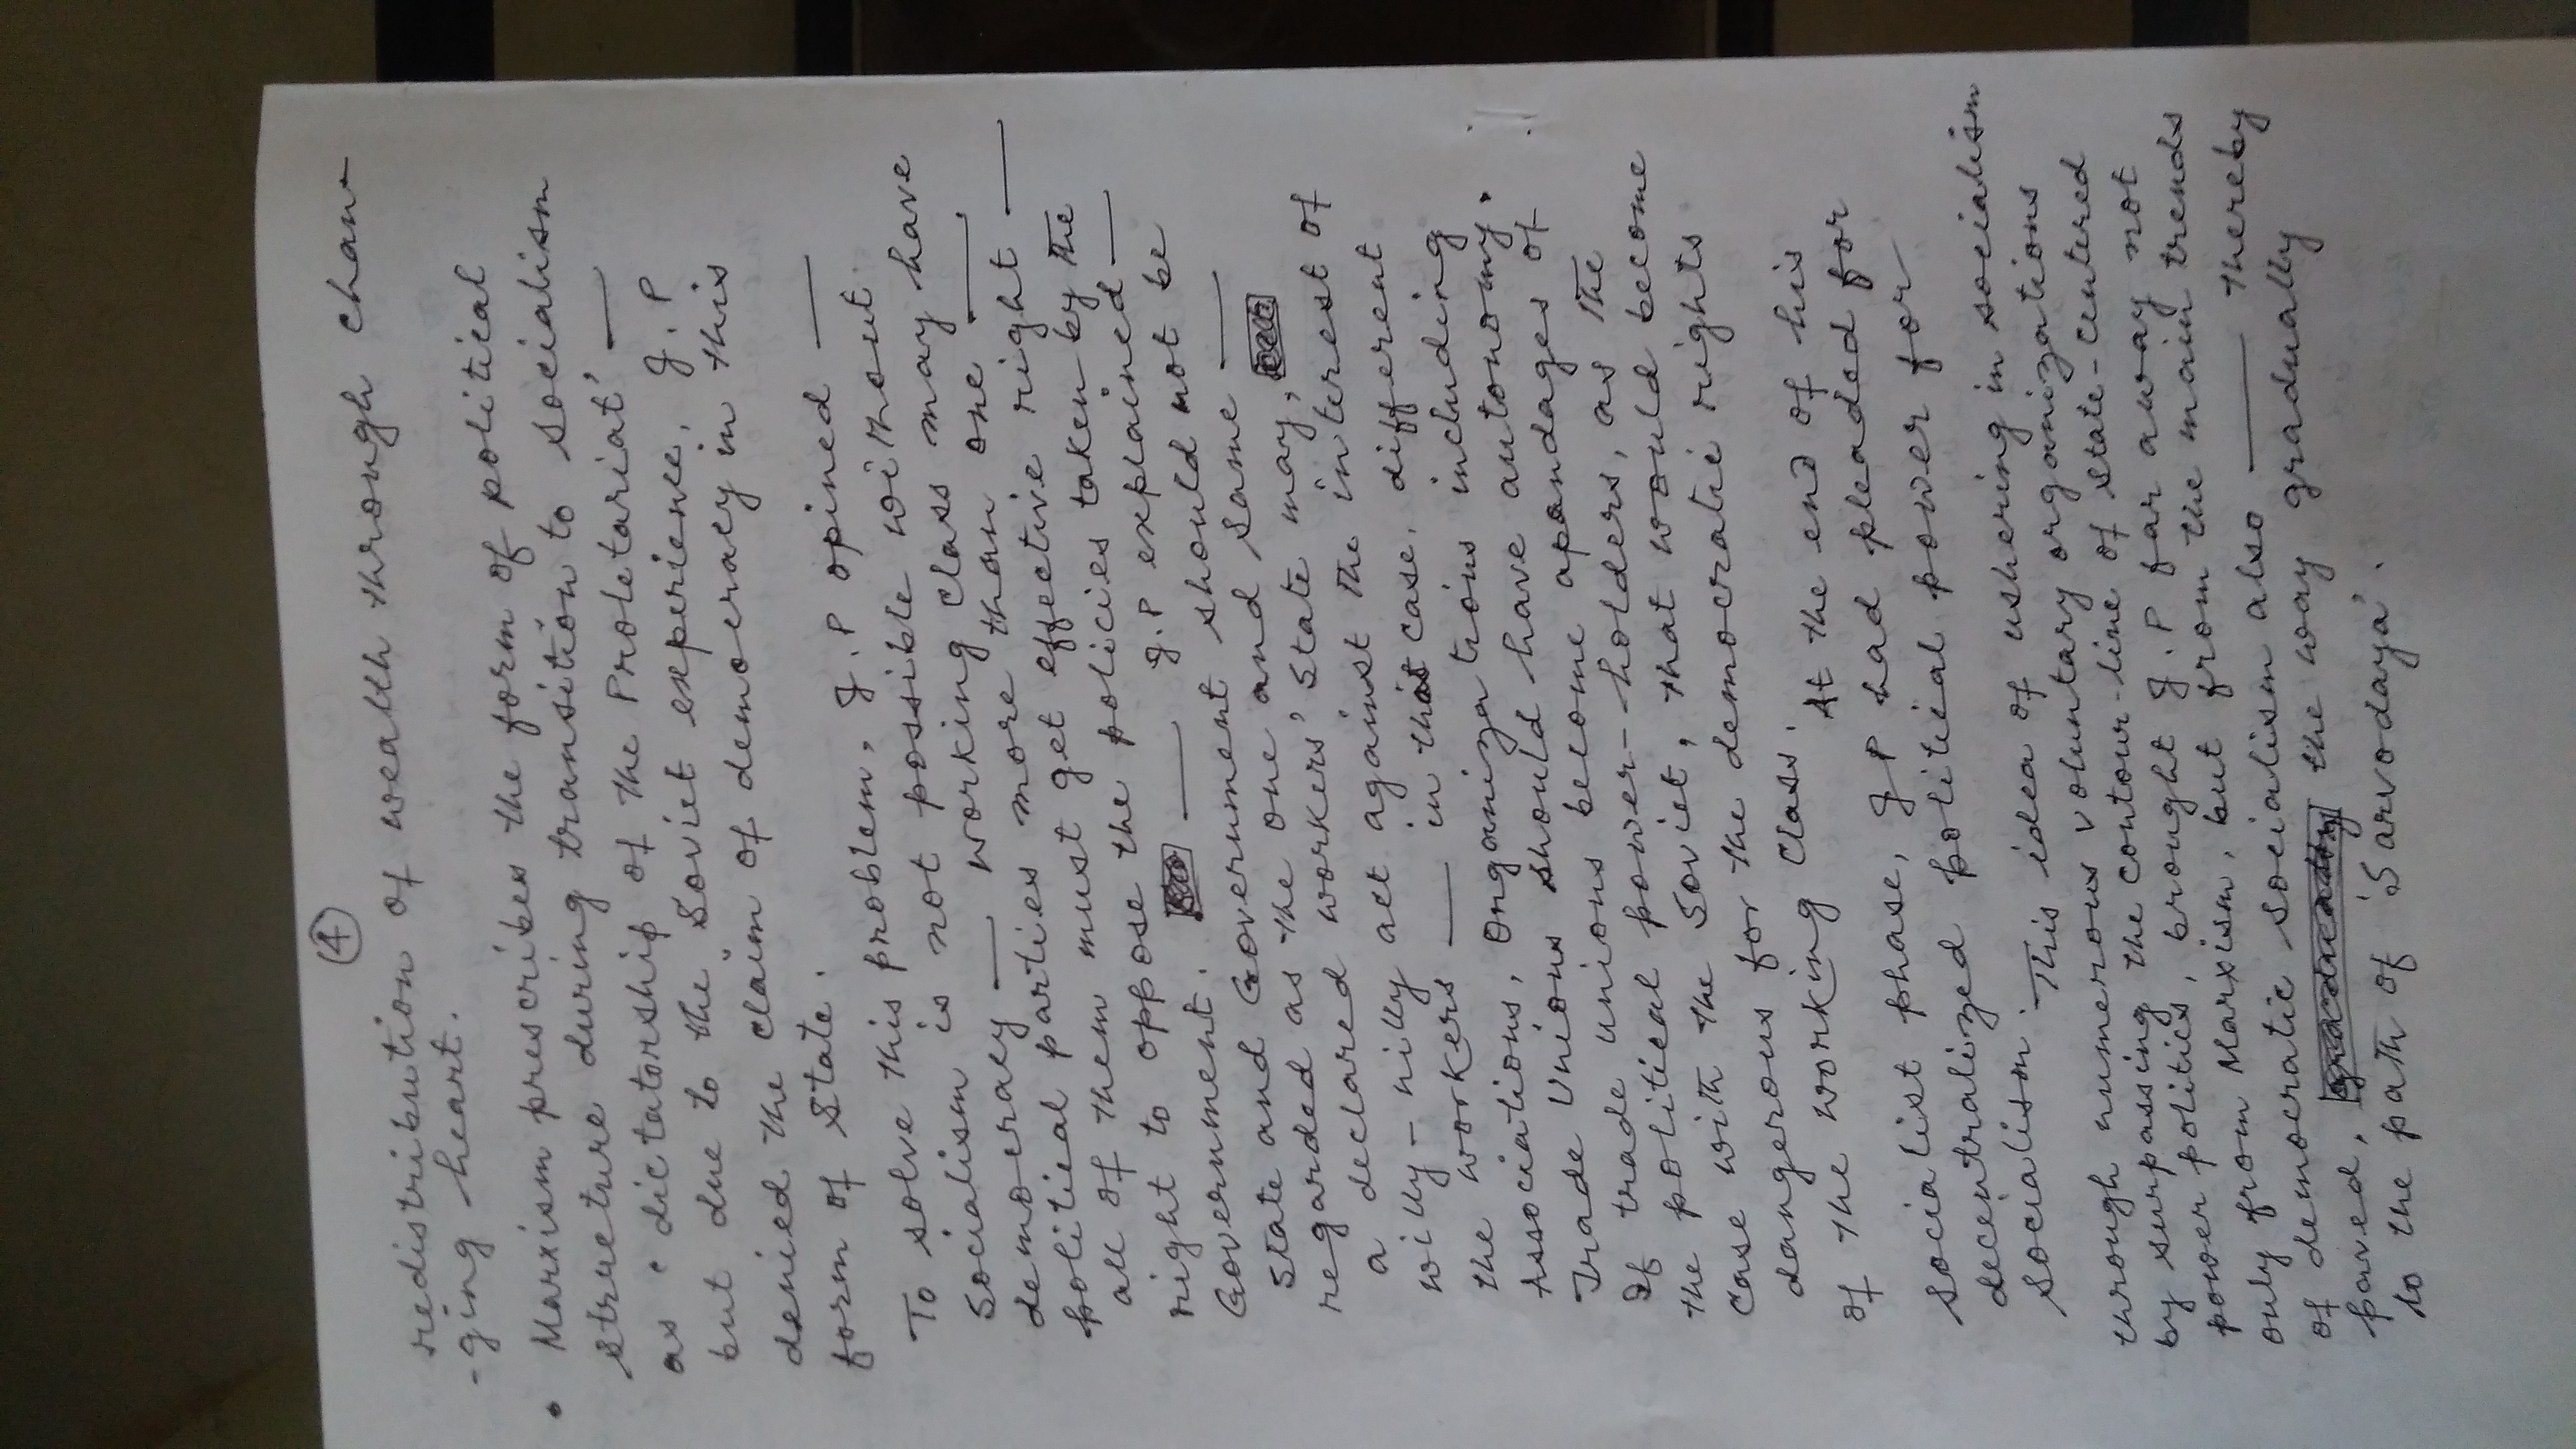 4
redistribution of wealth through chan-
-ging heart.
• Marxism prescribes the form of political
structure during transition to socialism
as 'dictatorship of the Proletariat' —
but due to the Soviet experience, J.P
denied the claim of democracy in this
form of State.
To solve this problem, J.P opined —
Socialism is not possible without
democracy — working class may have
political parties more than one —
all of them must get effective right —
right to oppose the policies taken by the
Government. — J.P explained —
State and Government should not be
regarded as the one and same —
a declared workers' State may,
willy-nilly act against the interest of
the workers — in that case, different
Associations, Organizations including
Trade Unions should have autonomy.
If trade unions become apandages of
the political power-holders, as the
case with the Soviet, that would become
dangerous for the democratic rights
of the working class. At the end of his
socialist phase, JP had pleaded for
decentralized political power for
socialism. This idea of ushering in socialism
through numerous voluntary organizations
by surpassing the contour-line of state-centered
power politics, brought J.P far away not
only from Marxism, but from the main trends
of democratic socialism also — thereby
paved, the way gradually
to the path of 'Sarvodaya'.